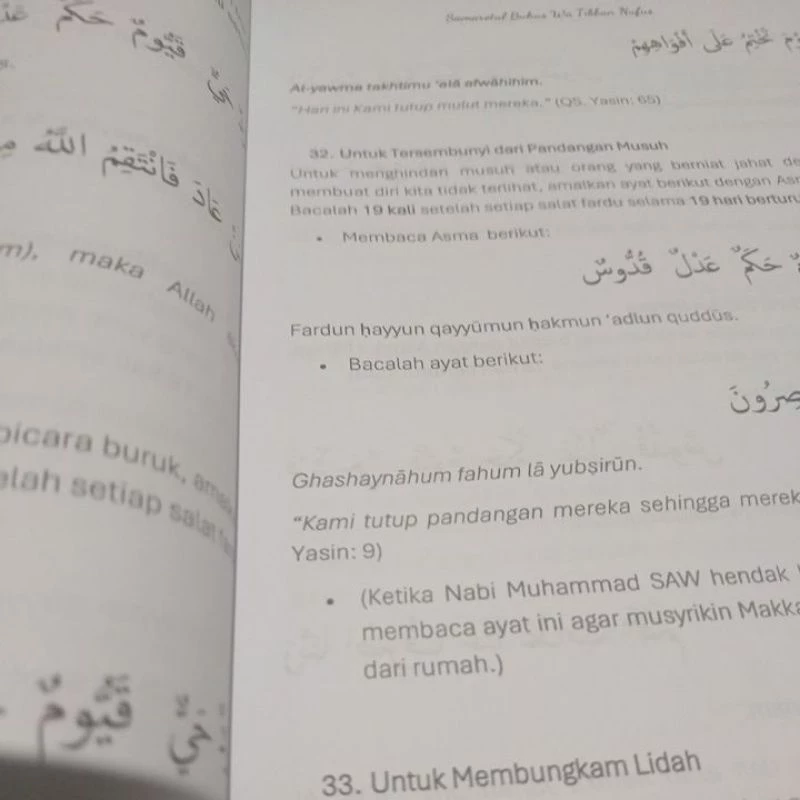 حَكَمٌ
قَيُّومٌ
حَيٌّ
اللّٰهُ
فَانْتَقِمُ
عَادَ
m), maka Allah
bicara buruk,
elah setiap salat
قَيُّومٌ
Samaratul Dukus Wa Tibban Nufus
نَخْتِمُ عَلَى أَفْوَاهِهِمْ
Al-yawma takhtimu 'alā afwāhihim.
"Hari ini Kami tutup mulut mereka." (QS. Yasin: 65)
32. Untuk Tersembunyi dari Pandangan Musuh
Untuk menghindari musuh atau orang yang berniat jahat de
membuat diri kita tidak terlihat, amalkan ayat berikut dengan Asm
Bacalah 19 kali setelah setiap salat fardu selama 19 hari berturu
• Membaca Asma berikut:
حَكَمٌ عَدْلٌ قُدُّوسٌ
Fardun ḥayyun qayyūmun ḥakmun 'adlun quddūs.
• Bacalah ayat berikut:
صِرُونَ
Ghashaynāhum fahum lā yubṣirūn.
"Kami tutup pandangan mereka sehingga merek
Yasin: 9)
• (Ketika Nabi Muhammad SAW hendak
membaca ayat ini agar musyrikin Makka
dari rumah.)
33. Untuk Membungkam Lidah